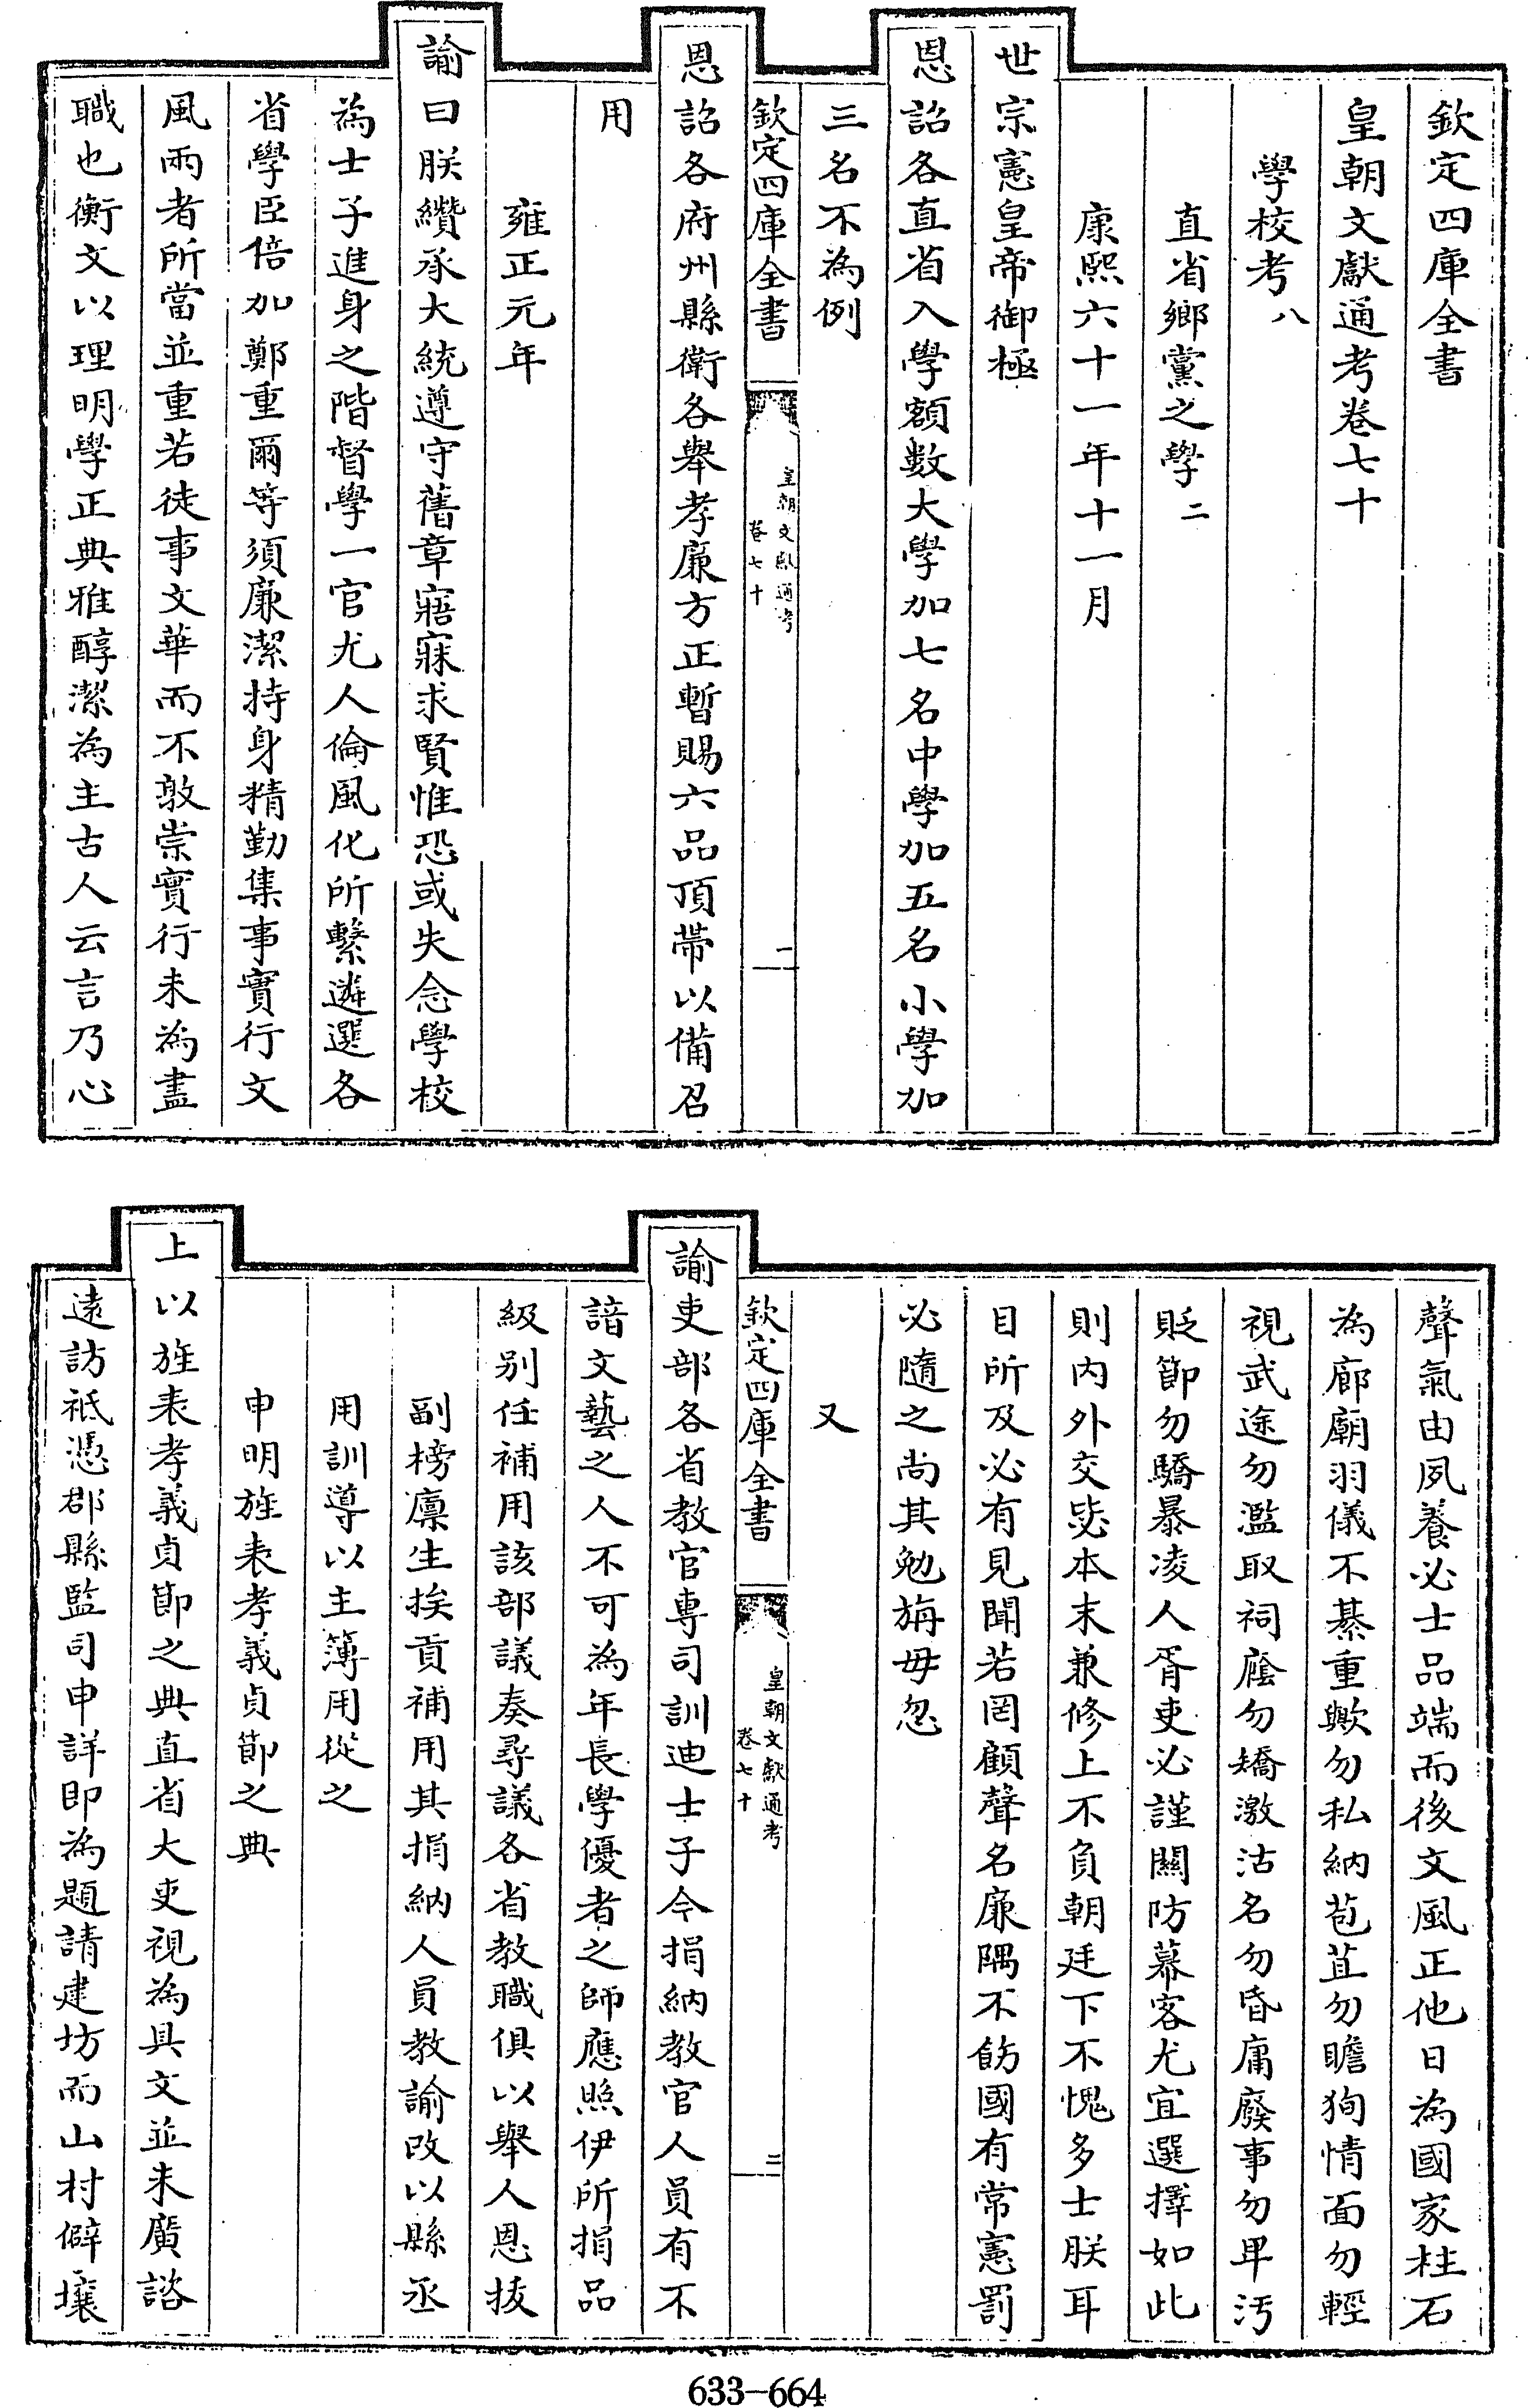 欽定四庫全書
皇朝文獻通考卷七十
學校考八
直省鄉黨之學二
康熙六十一年十一月
世宗憲皇帝御極
恩詔各直省入學額數大學加七名中學加五名小學加
三名不為例
欽定四庫全書
皇朝文獻通考
卷七十
一
恩詔各府州縣衛各舉孝廉方正暫賜六品頂帶以備召
用
雍正元年
諭曰朕纘承大統遵守舊章寤寐求賢惟恐或失念學校
為士子進身之階督學一官尤人倫風化所繫遴選各
省學臣倍加鄭重爾等須廉潔持身精勤集事實行文
風兩者所當並重若徒事文華而不敦崇實行未為盡
職也衡文以理明學正典雅醇潔為主古人云言乃心
聲氣由夙養必士品端而後文風正他日為國家柱石
為廊廟羽儀不綦重歟勿私納苞苴勿瞻狥情面勿輕
視武途勿濫取祠廕勿矯激沽名勿昏庸廢事勿卑汚
貶節勿驕暴凌人胥吏必謹關防幕客尤宜選擇如此
則内外交毖本末兼修上不負朝廷下不愧多士朕耳
目所及必有見聞若罔顧聲名廉隅不飭國有常憲罰
必隨之尚其勉旃毋忽
又
欽定四庫全書
皇朝文獻通考
卷七十
二
諭吏部各省教官專司訓迪士子今捐納教官人員有不
諳文藝之人不可為年長學優者之師應照伊所捐品
級别任補用該部議奏尋議各省教職俱以舉人恩拔
副榜廪生挨貢補用其捐納人員教諭改以縣丞
用訓導以主簿用從之
申明旌表孝義貞節之典
上以旌表孝義貞節之典直省大吏視為具文並未廣諮
遠訪祗憑郡縣監司申詳即為題請建坊而山村僻壤
633-664